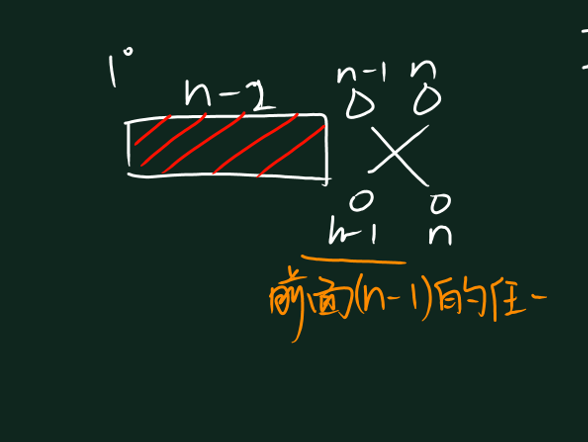 1°
n-2
n-1 n
n-1 n
前面(n-1)的任一